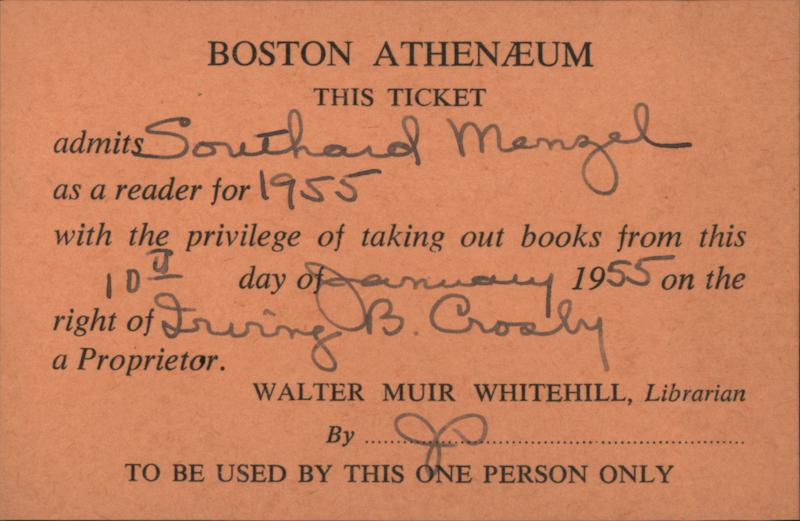 BOSTON ATHENÆUM
THIS TICKET
admits Southard Menzel
as a reader for 1955
with the privilege of taking out books from this
10th day of January 1955 on the
right of Irving B. Crosby
a Proprietor.
WALTER MUIR WHITEHILL, Librarian
By
TO BE USED BY THIS ONE PERSON ONLY